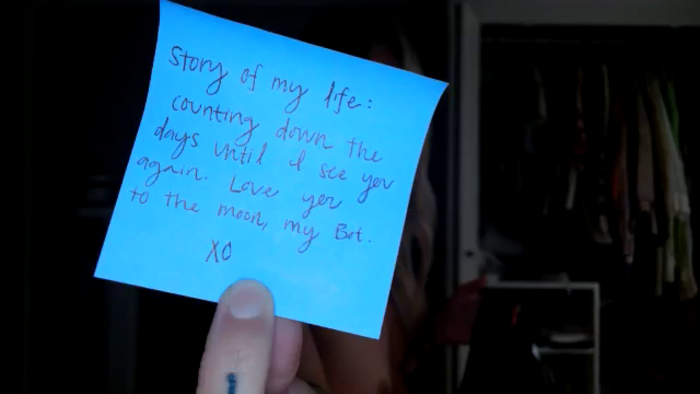 Story of my life:
counting down the
days until I see you
again. Love you
to the moon, my Bet.
XO